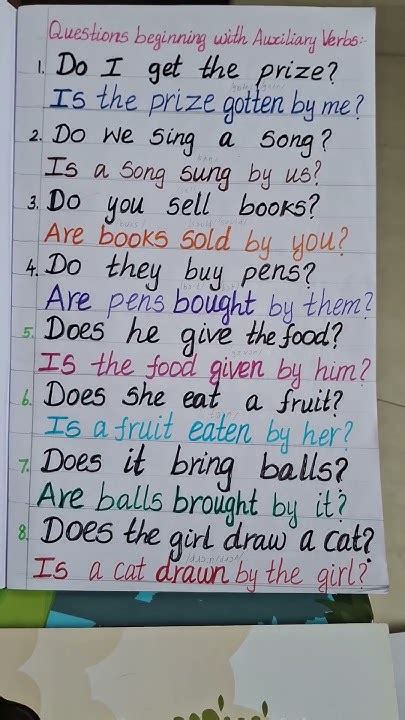 Questions beginning with Auxiliary Verbs:-
1. Do I get the prize?
Is the prize gotten by me?
2. Do we sing a song?
Is a song sung by us?
3. Do you sell books?
Are books sold by you?
4. Do they buy pens?
Are pens bought by them?
5. Does he give the food?
Is the food given by him?
6. Does she eat a fruit?
Is a fruit eaten by her?
7. Does it bring balls?
Are balls brought by it?
8. Does the girl draw a cat?
Is a cat drawn by the girl?